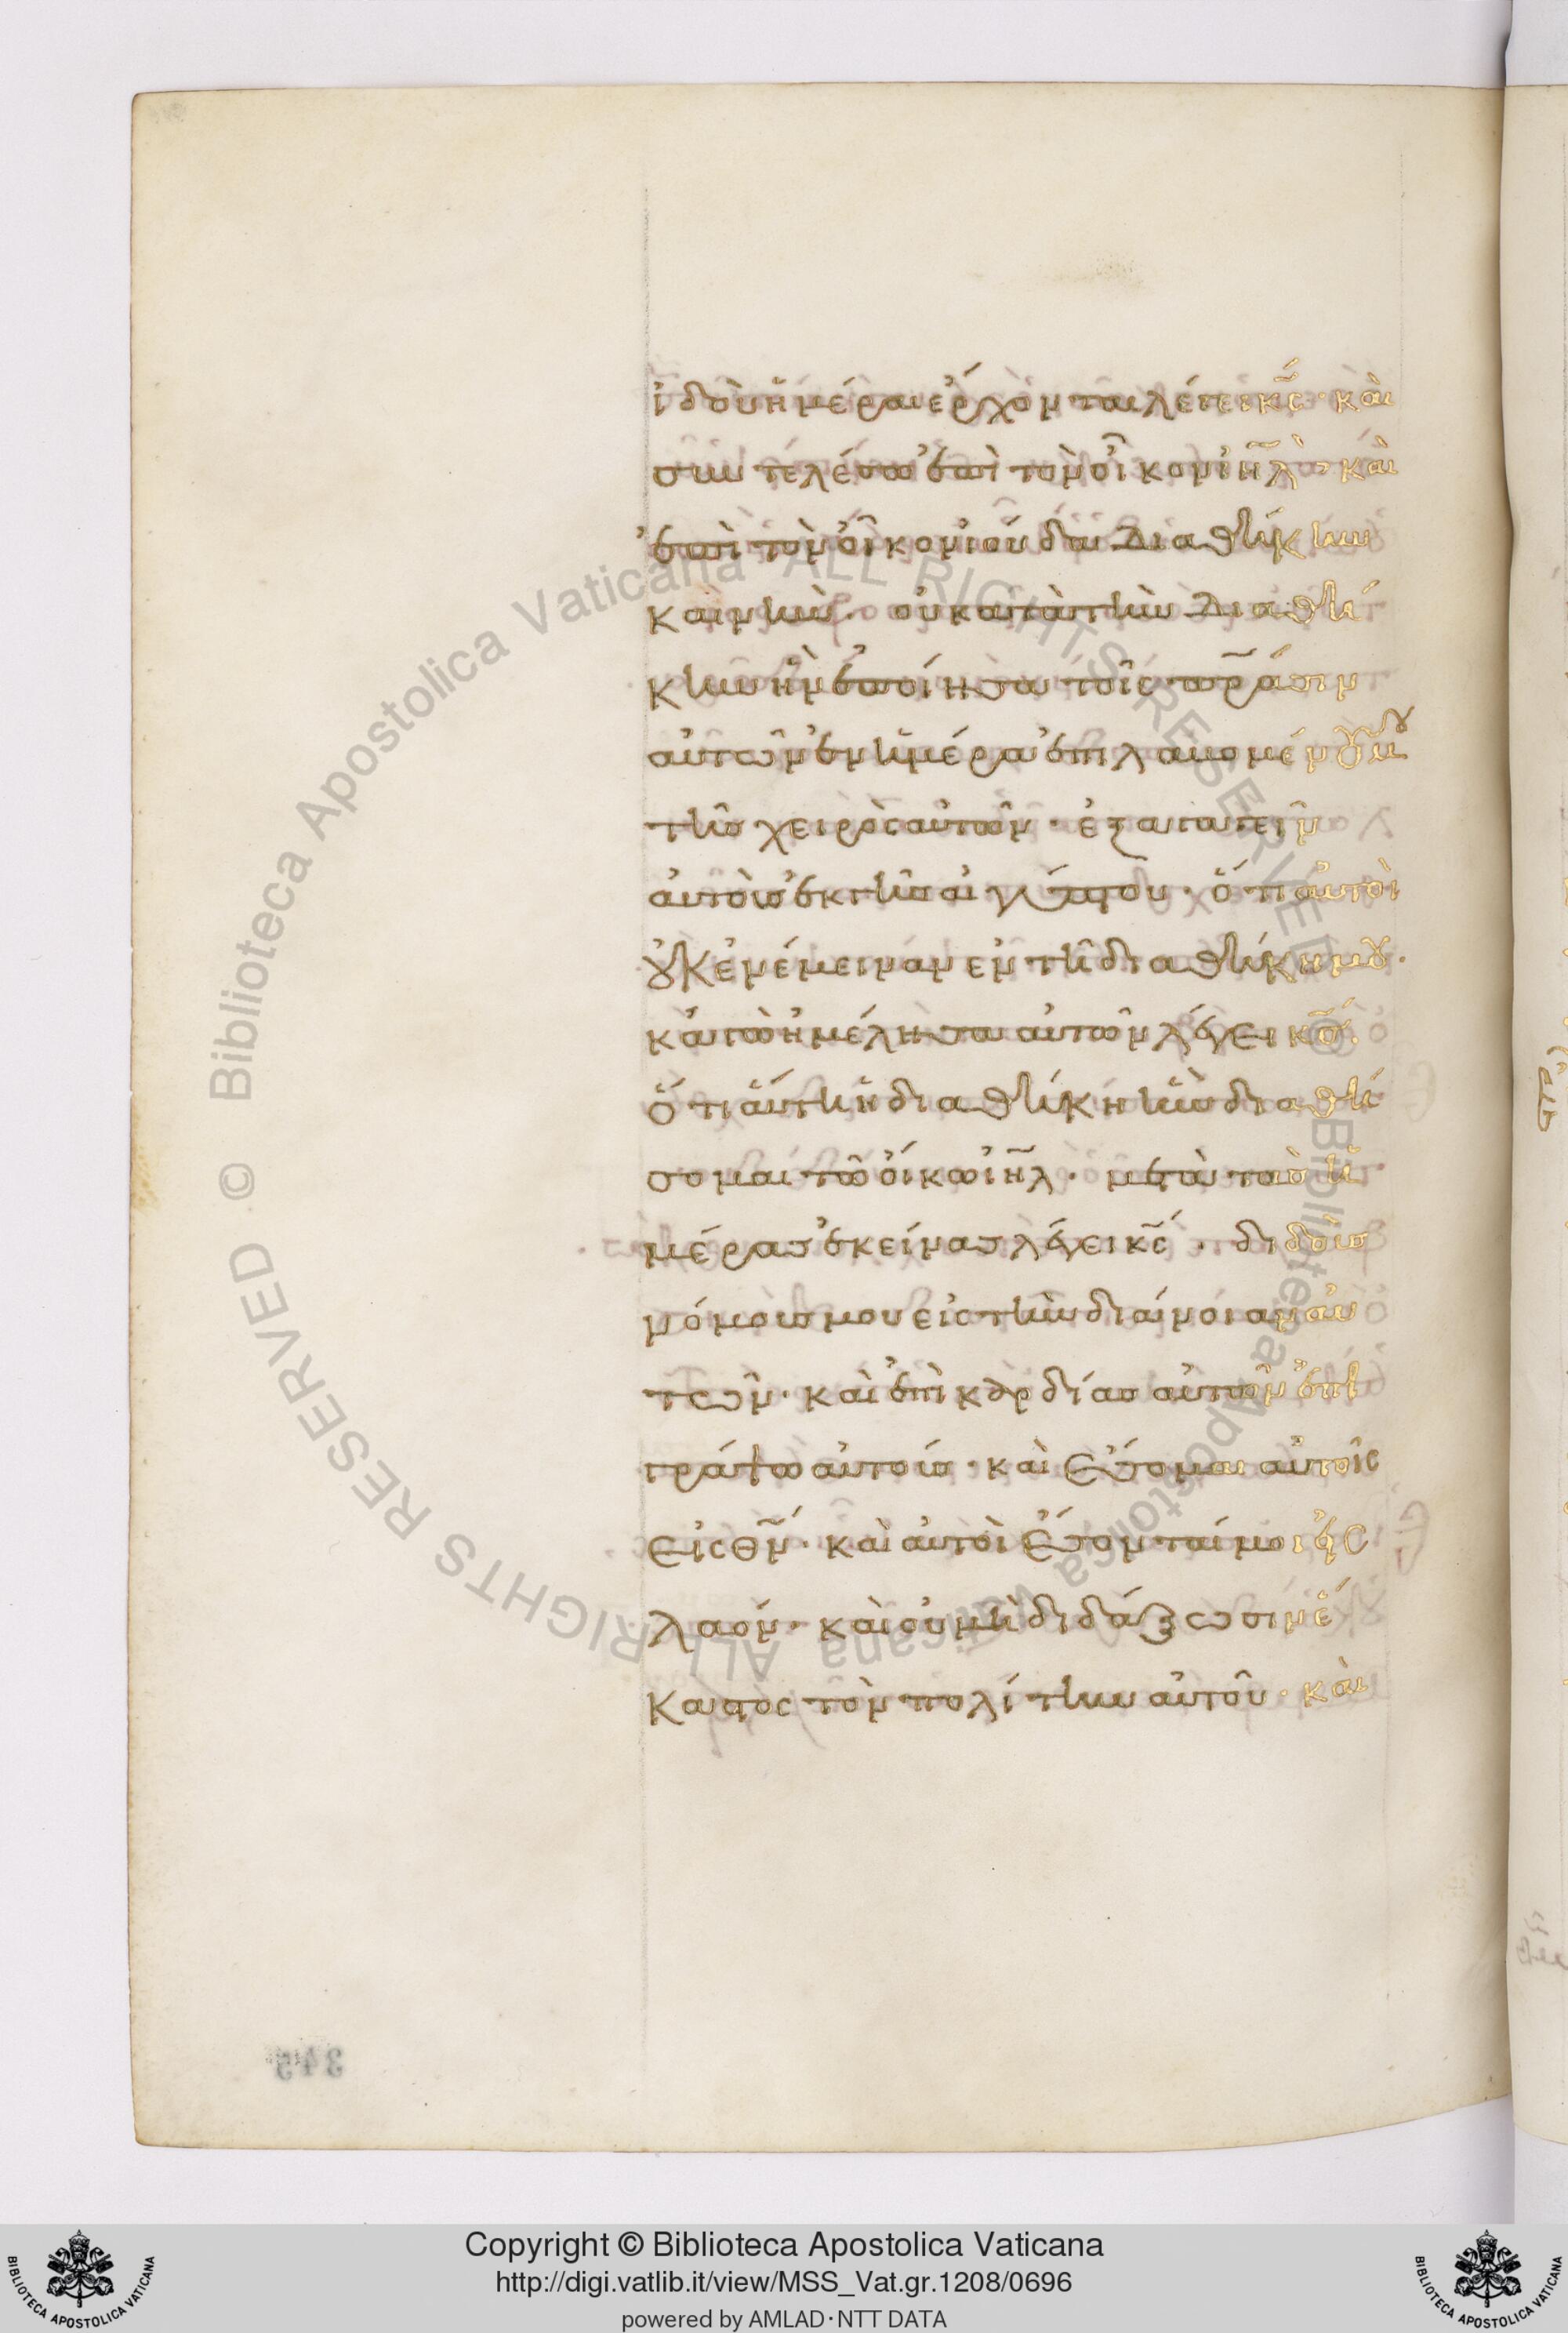 ἰδοὺ ἡμέραι ἔρχονται λέγει κ̅ς̅· καὶ
συντελέσω ἐπὶ τὸν οἶκον ἰη̅λ̅ καὶ
ἐπὶ τὸν οἶκον ἰούδα διαθήκην
καινήν· οὐ κατὰ τὴν διαθή
κην ἣν ἐποίησα τοῖς πρ̅άσιν
αὐτῶν ἐν ἡμέρα ἐπιλαβομένου μου
τῆς χειρὸς αὐτῶν· ἐξαγαγεῖν
αὐτοὺς ἐκ τῆς αἰγύπτου· ὅτι αὐτοὶ
οὐκ ἐνέμειναν ἐν τῆ διαθήκη μου·
κἀγὼ ἠμέλησα αὐτῶν λέγει κ̅ς̅·
ὅτι αὕτη ἡ διαθήκη ἣν διαθή
σομαι τῶ οἴκω ἰη̅λ̅· μετὰ τὰς ἡ
μέρας ἐκείνας λέγει κ̅ς̅· διδοὺς
νόμους μου εἰς τὴν διάνοιαν αὐ
τῶν· καὶ ἐπὶ καρδίας αὐτῶν ἐπι
γράψω αὐτούς· καὶ ἔσομαι αὐτοῖς
εἰς θ̅ν̅· καὶ αὐτοὶ ἔσονταί μοι εἰς
λαόν· καὶ οὐ μὴ διδάξωσιν ἕ
καστος τὸν πολίτην αὐτοῦ· καὶ
345
Biblioteca Apostolica Vaticana ALL RIGHTS RESERVED © Biblioteca Apostolica Vaticana ALL RIGHTS RESERVED ©
Copyright © Biblioteca Apostolica Vaticana
http://digi.vatlib.it/view/MSS_Vat.gr.1208/0696
powered by AMLAD·NTT DATA
BIBLIOTECA APOSTOLICA VATICANA
BIBLIOTECA APOSTOLICA VATICANA